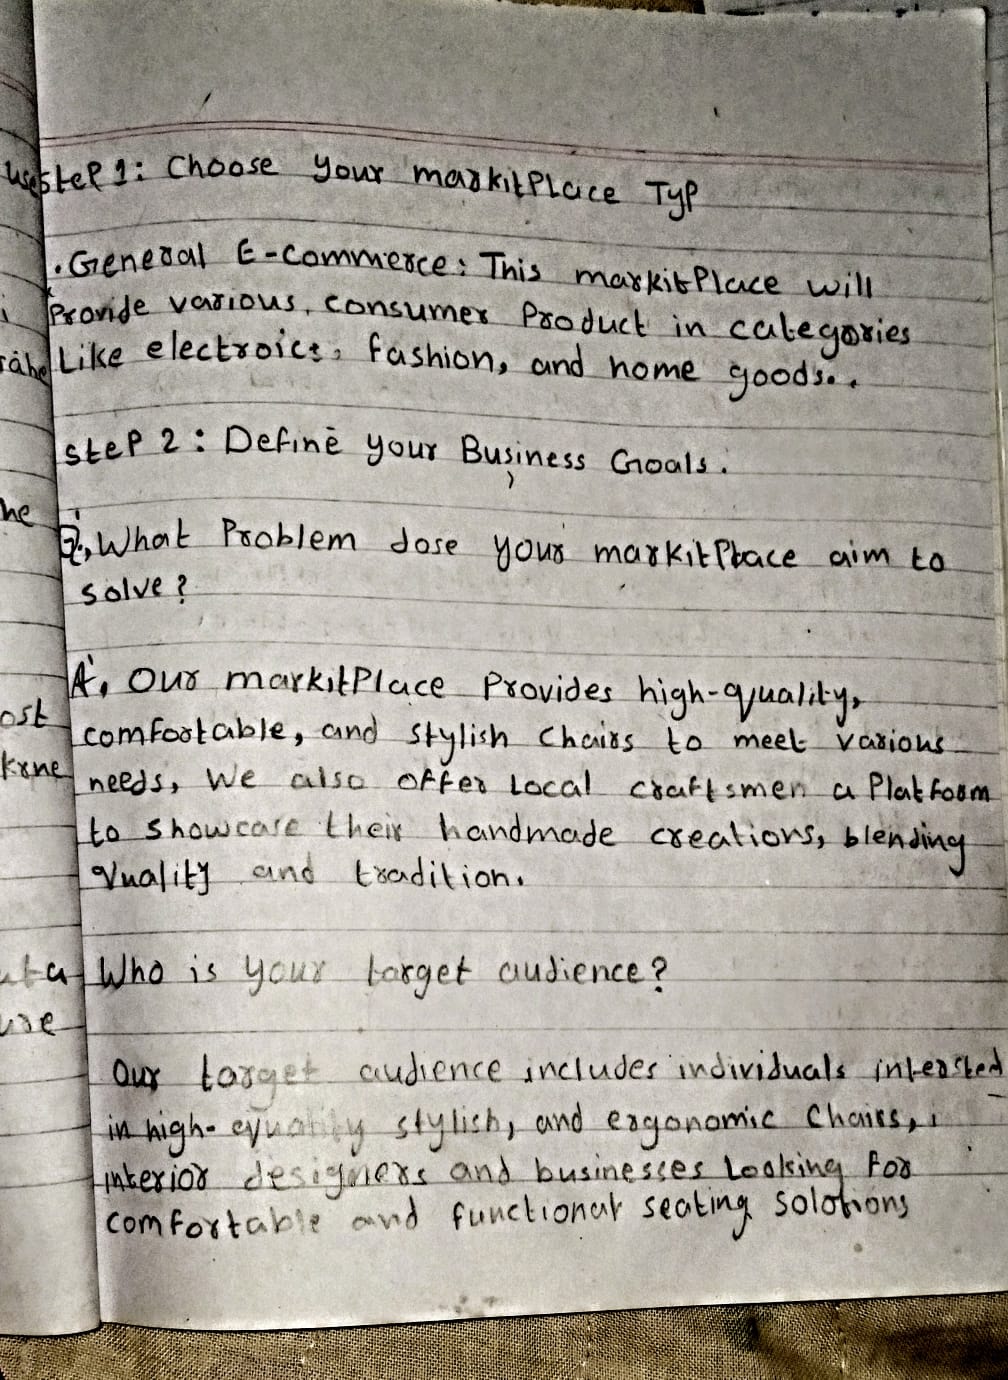 Step 1: Choose your markitPlace Typ
. General E-commerce: This markitPlace will
Provide various, consumer Product in categories
Like electroics, fashion, and home goods..
Step 2: Define your Business Goals.
Q, What Problem dose your markitPlace aim to
solve?
A, Our markitPlace Provides high-quality,
comfortable, and stylish Chairs to meet various
needs, We also offer Local craftsmen a Platform
to showcase their handmade creations, blending
quality and tradition.
Who is your target audience?
Our target audience includes individuals intersted
in high-quality stylish, and ergonomic Chairs,
interior designers and businesses Looking for
comfortable and functional seating solotions
he
ost